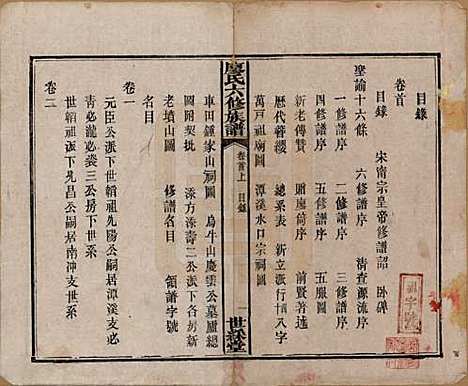 目錄
卷首
目錄 宋南宗皇帝修譜詔 卧碑
聖諭十六條 六修譜序 清查源流序
一修譜序 二修譜序 三修譜序
四修譜序 五修譜序 五服圖
新老傳贊 贈座簡序 前賢著述
歷代簪纓 總系表 新立派行十八字
萬戸祖廟圖 潭溪水口宗祠圖
廖氏六修族譜
卷首上 目錄
一
世綵堂
車田鍾家山祠圖 烏牛山慶雲公墓廬總
圖附契批 添方添壽二公派下各房新
老墳山圖 修譜名目 領譜字號
名目
卷一
元臣公派下世韜祖先陽公嗣居潭溪支必
青必瀧必裘三公房下世系
世韜祖派下先 公嗣居南冲支世系
卷二
祖字號